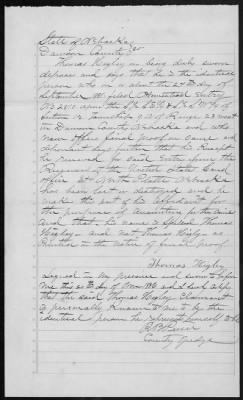 State of Nebraska
Dawson County ss
Thomas Higley being duly sworn
deposes and says that he is the identical
person who on or about the 24th day of
September made Homestead Entry
No upon the S½ SE¼ & S½ SW¼ of
Section 12 Township 9 N of Range 23 west
in Dawson County Nebraska and who
now offers final proof in said
deponent says further that his Receipt
he received for said Entry from the
Register of the United States Land
office at North Platte Nebraska
has been lost or destroyed and he
makes this affidavit for
the purpose of
And that his name is spelled Thomas
Higley and not Thomas Higby as
Printed in the notice of final proof.
Thomas Higley
Signed in my presence and sworn to before
me this day of and I certify
that the said Thomas Higley claimant
is personally known to me to be the
identical person he represents himself to be
County Judge